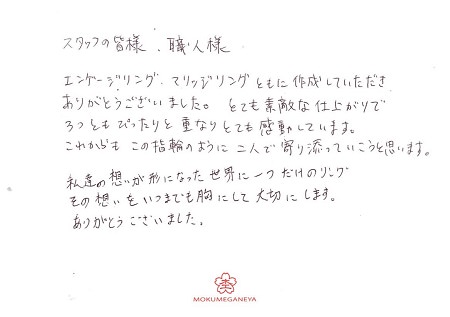 スタッフの皆様、職人様
エンゲージリング、マリッジリングともに作成していただき
ありがとうございました。とても素敵な仕上がりで
3つともぴったりと重なりとても感動しています。
これからもこの指輪のように二人で寄り添っていこうと思います。
私達の想いが形になった世界に一つだけのリング
その想いをいつまでも胸にして大切にします。
ありがとうございました。
MOKUMEGANEYA